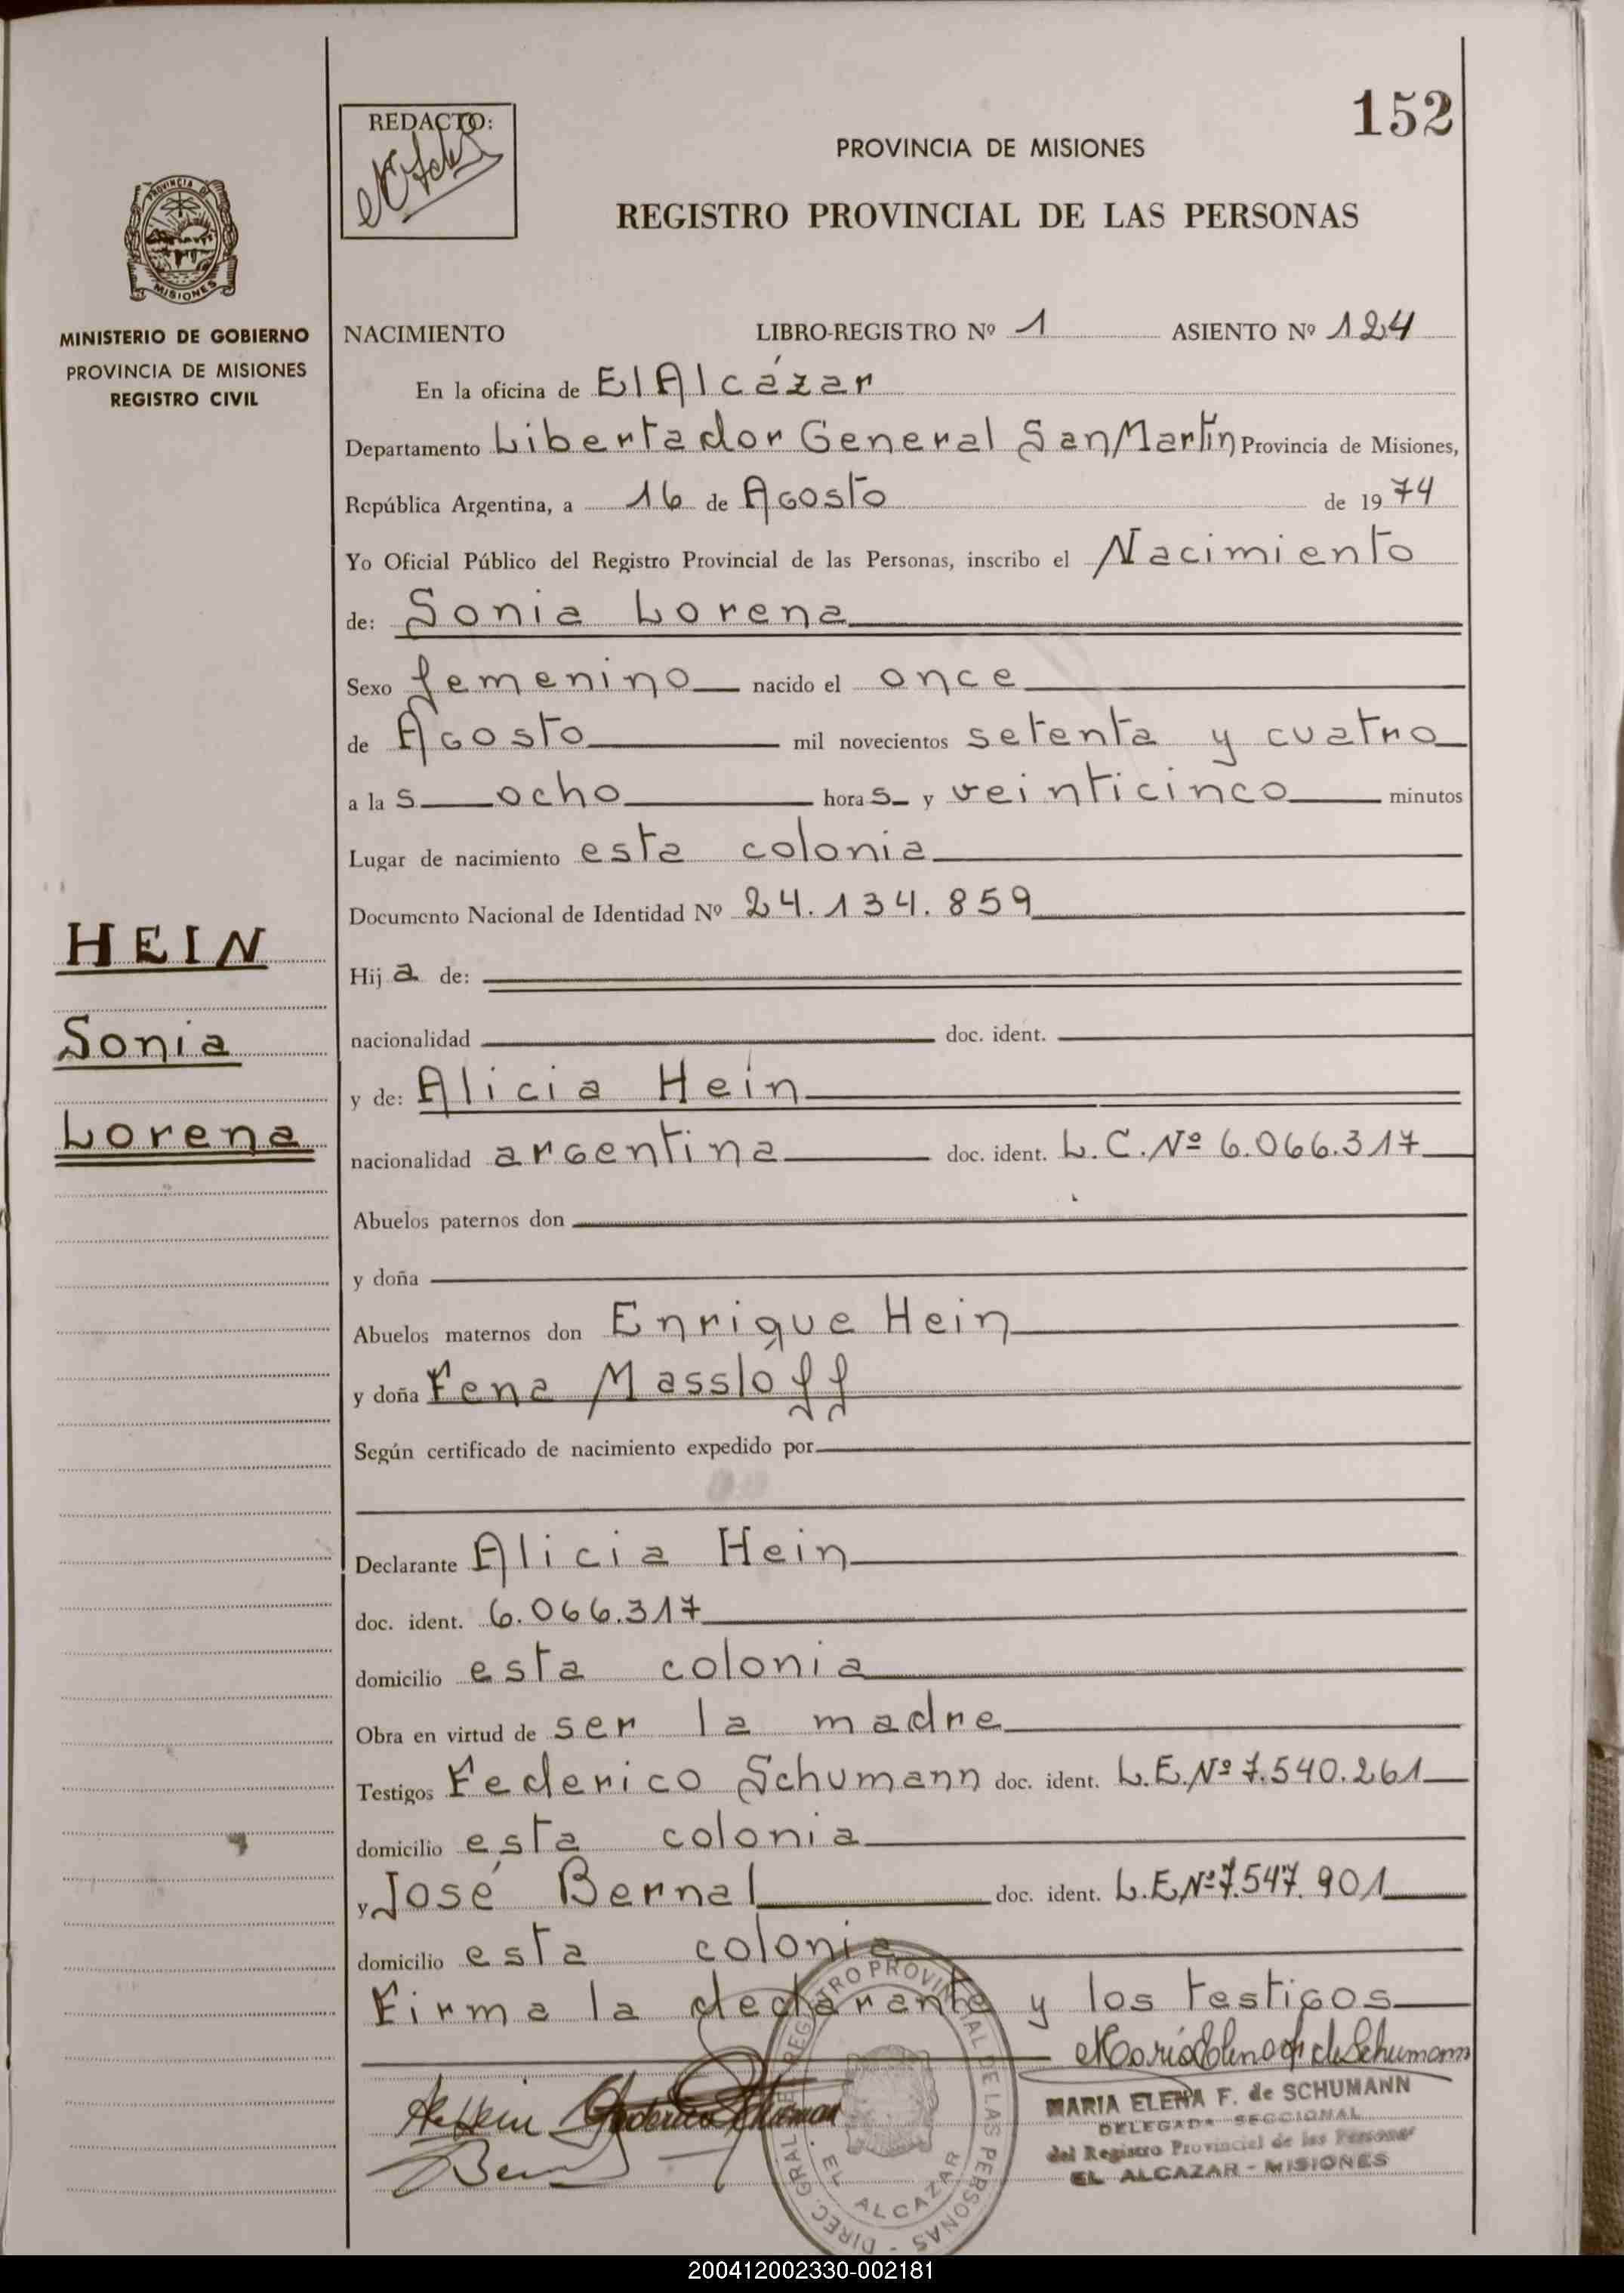 152
REDACTO:
PROVINCIA DE MISIONES
REGISTRO PROVINCIAL DE LAS PERSONAS
PROVINCIA DE
MISIONES
MINISTERIO DE GOBIERNO
PROVINCIA DE MISIONES
REGISTRO CIVIL
NACIMIENTO LIBRO-REGISTRO Nº 1 ASIENTO Nº 124
En la oficina de El Alcázar
Departamento Libertador General San Martín Provincia de Misiones,
República Argentina, a 16 de Agosto de 1974
Yo Oficial Público del Registro Provincial de las Personas, inscribo el Nacimiento
de: Sonia Lorena
Sexo femenino nacido el once
de Agosto mil novecientos setenta y cuatro
a las ocho horas y veinticinco minutos
Lugar de nacimiento esta colonia
Documento Nacional de Identidad Nº 24.134.859
HEIN
Sonia
Lorena
Hija de:
nacionalidad doc. ident.
y de: Alicia Hein
nacionalidad argentina doc. ident. L.C.Nº 6.066.317
Abuelos paternos don
y doña
Abuelos maternos don Enrique Hein
y doña Fena Massloff
Según certificado de nacimiento expedido por
Declarante Alicia Hein
doc. ident. 6.066.317
domicilio esta colonia
Obra en virtud de ser la madre
Testigos Federico Schumann doc. ident. L.E.Nº 7.540.261
domicilio esta colonia
y José Bernal doc. ident. L.E.Nº 7.547.901
domicilio esta colonia
Firma la declarante y los testigos
MARIA ELENA F. de SCHUMANN
DELEGADA SECCIONAL
del Registro Provincial de las Personas
EL ALCAZAR - MISIONES
DIREC. GRAL. DE REGISTRO PROVINCIAL DE LAS PERSONAS
EL ALCAZAR
200412002330-002181